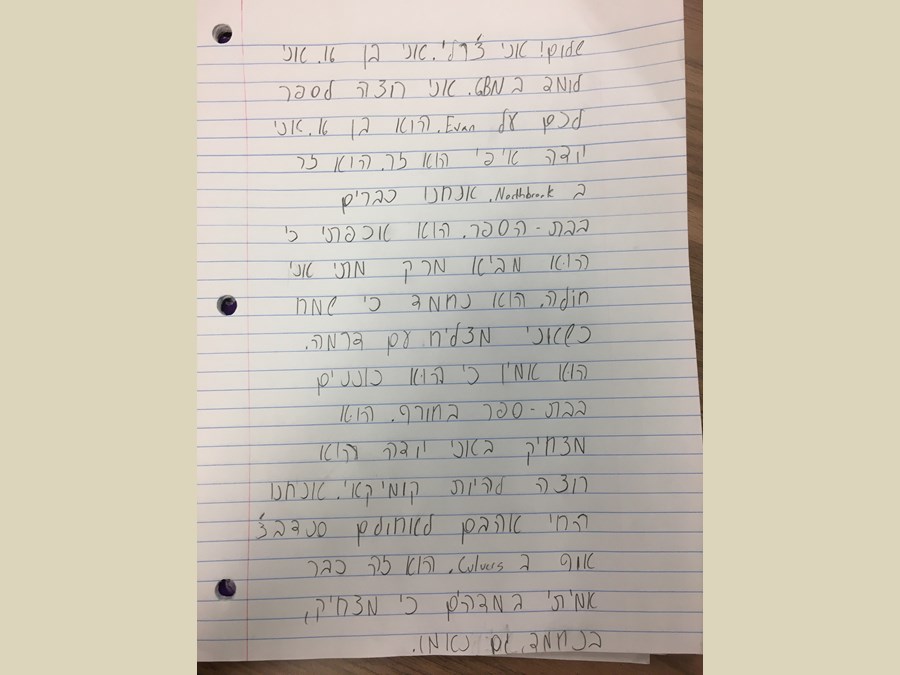 שלום! אני צ'רלי. אני בן 16. אני
לומד ב GBN. אני רוצה לספר
לכם על Evan. הוא בן 16. אני
יודה איפ' הוא לר. הוא לר
ב Northbrook. אנחנו כברים
בבת - הספר. הוא אכפתי כ'
הוא מביא מרק מתי אני
חולה. הוא נחמד כי שמח
כשאני מצליח עם דרמה.
הוא אמין כ' הוא כוננים
בבת - ספר בחורף. הוא
מצחיק באני יודה
רוצה להיות קומיקאי. אנחנו
הח' אהבם לאחולם סנדבצ'
אוף ב Culvers. הוא לה כבר
אמיתי במדהים כי מצחיק,
בנחמד, גם נאמן.